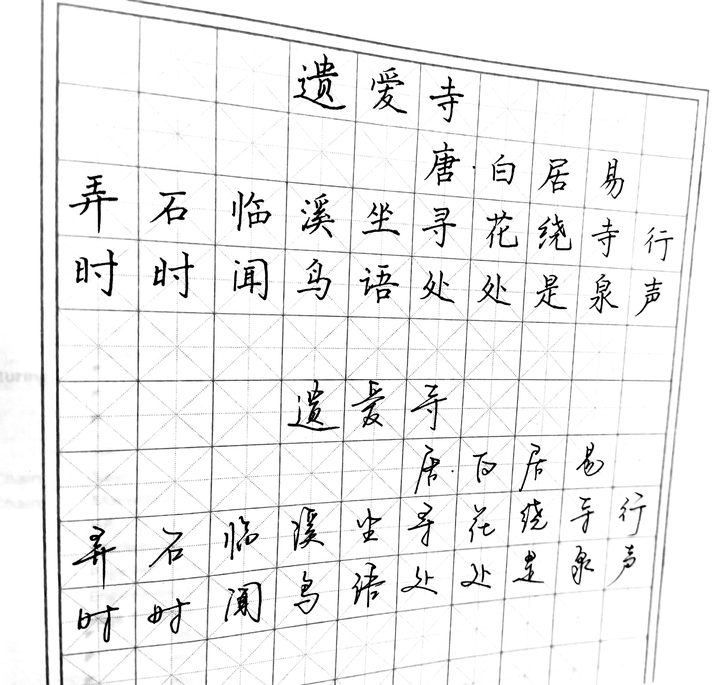 遗爱寺
唐·白居易
弄石临溪坐寻花绕寺行
时时闻鸟语处处是泉声
遗爱寺
唐·白居易
弄石临溪坐寻花绕寺行
时时闻鸟语处处是泉声